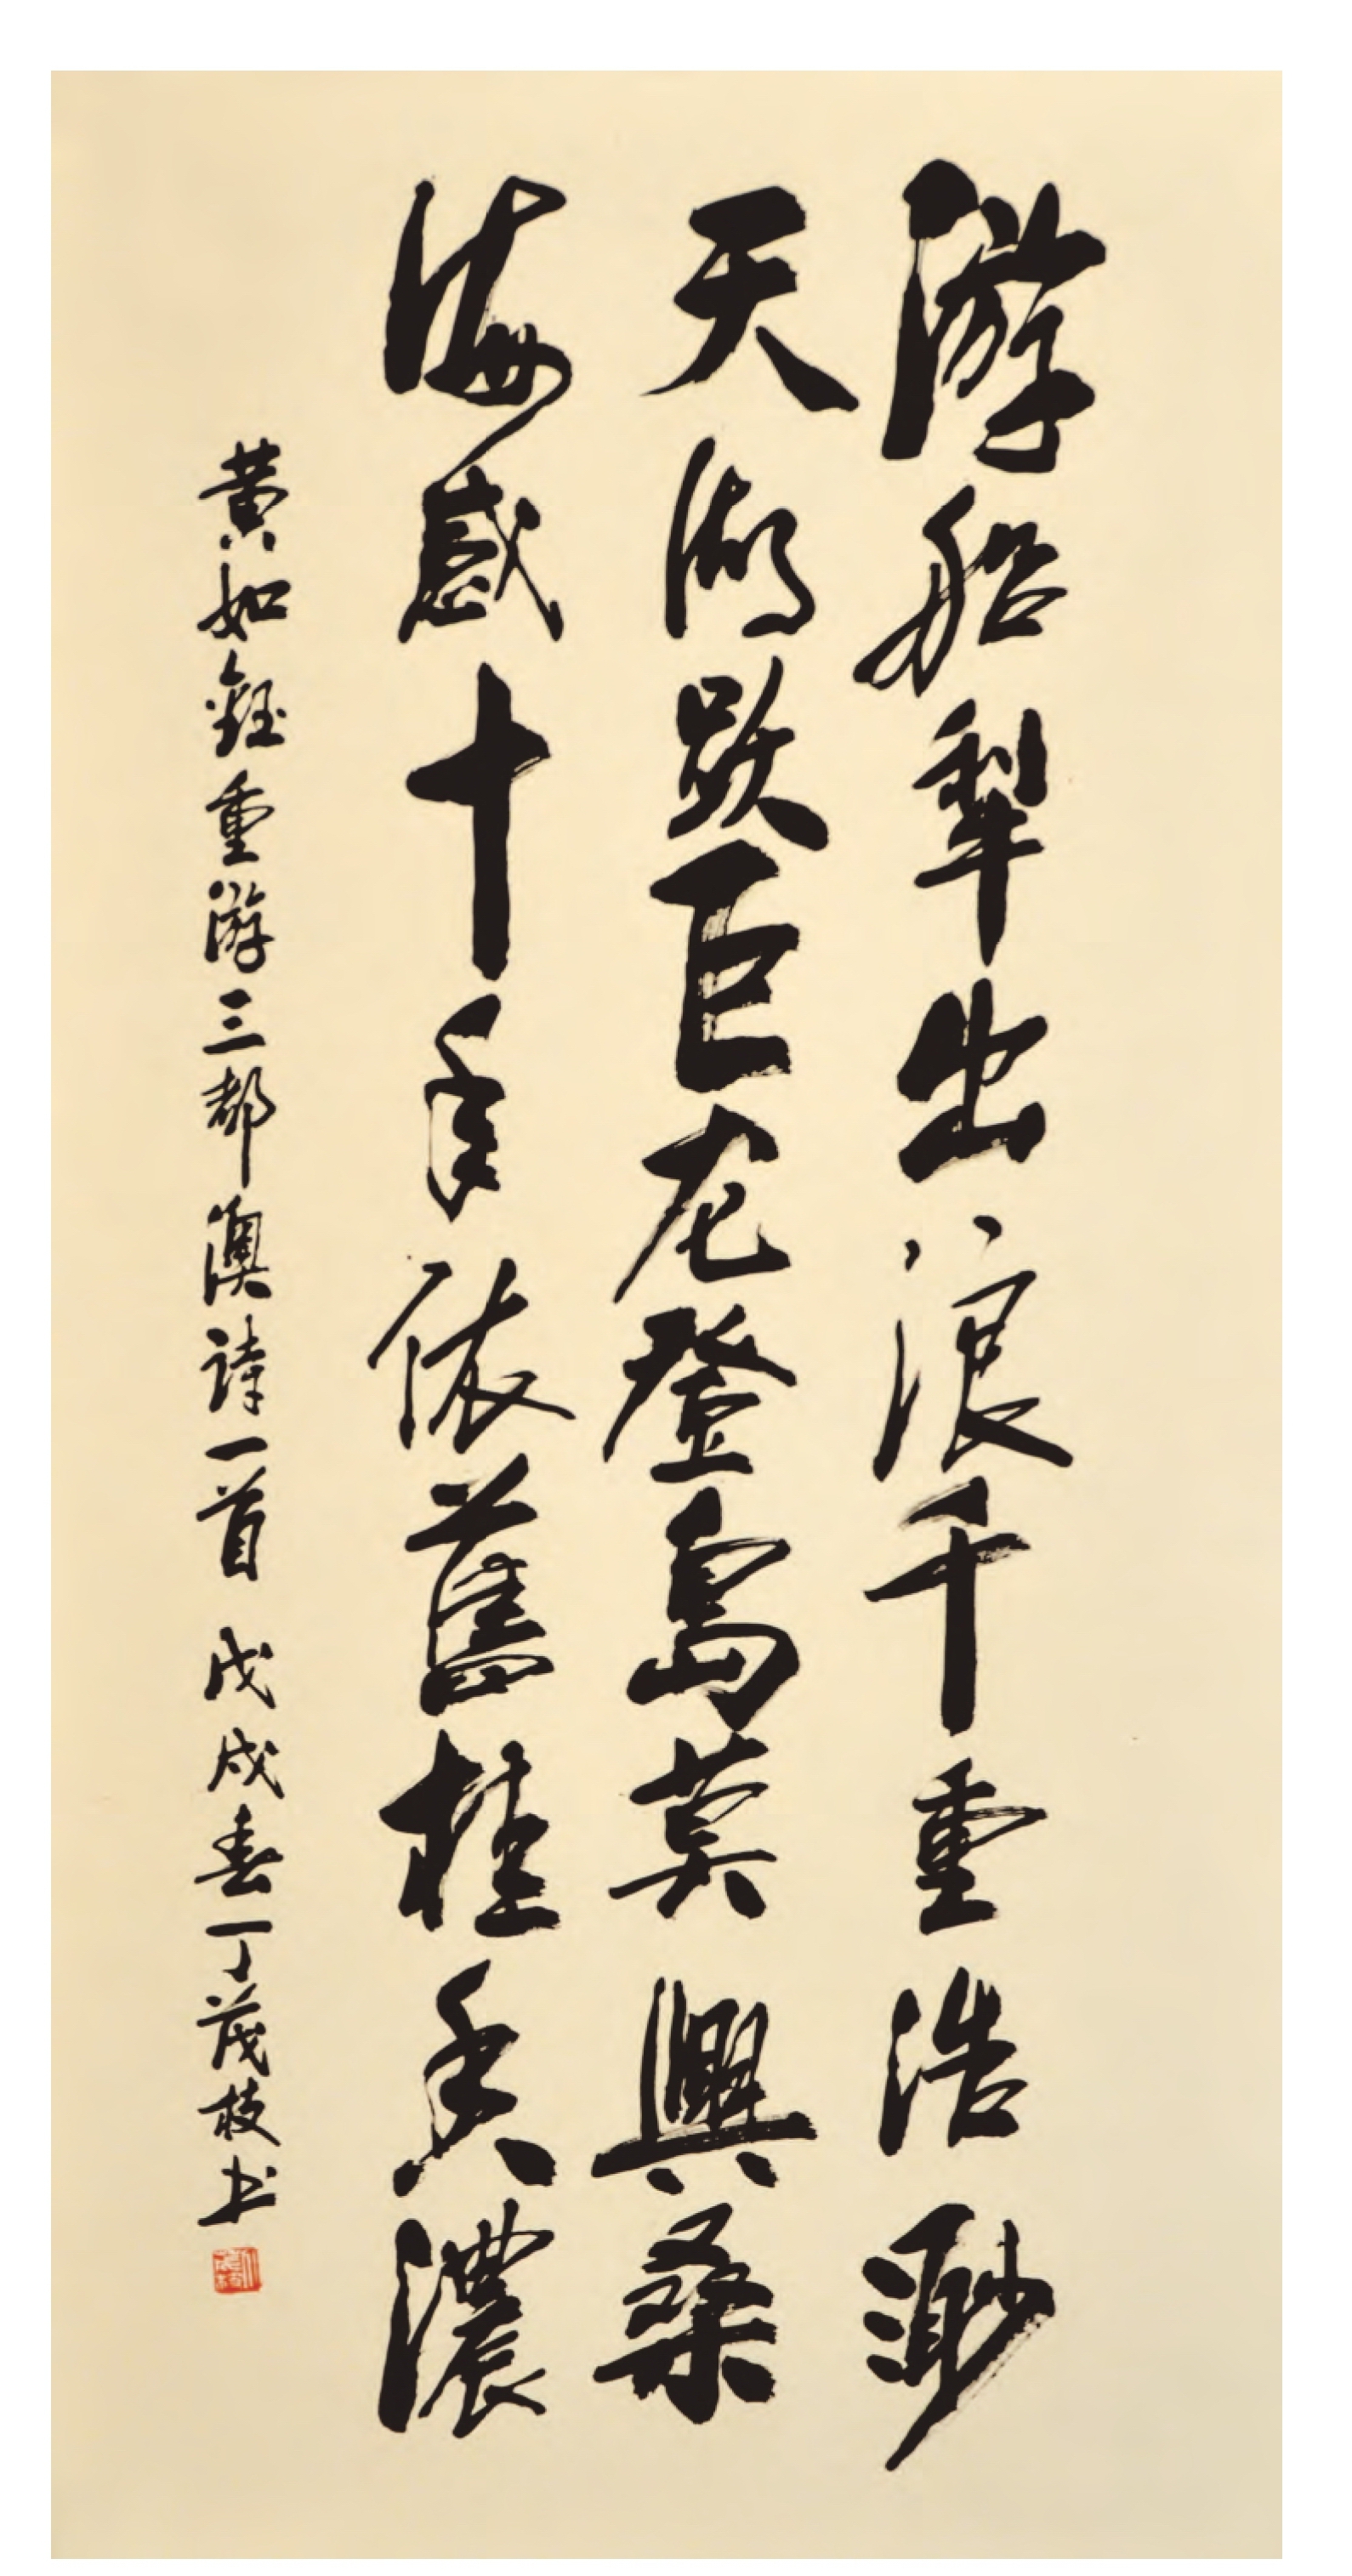 游船犁出浪千重浩渺
天湖跃巨龙登岛莫興桑
海感十年依舊桂香濃
黄如鈺重游三都澳诗一首 戊戌春丁茂枝书